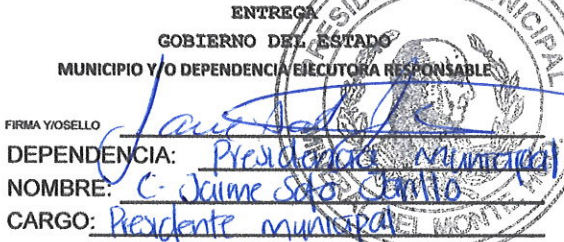 ENTREGA
GOBIERNO DEL ESTADO
MUNICIPIO Y/O DEPENDENCIA EJECUTORA RESPONSABLE
FIRMA Y/O SELLO
DEPENDENCIA: Presidencia Municipal
NOMBRE: C. Jaime Soto
CARGO: Presidente municipal
PRESID
NICIPAL
DEL MONTE